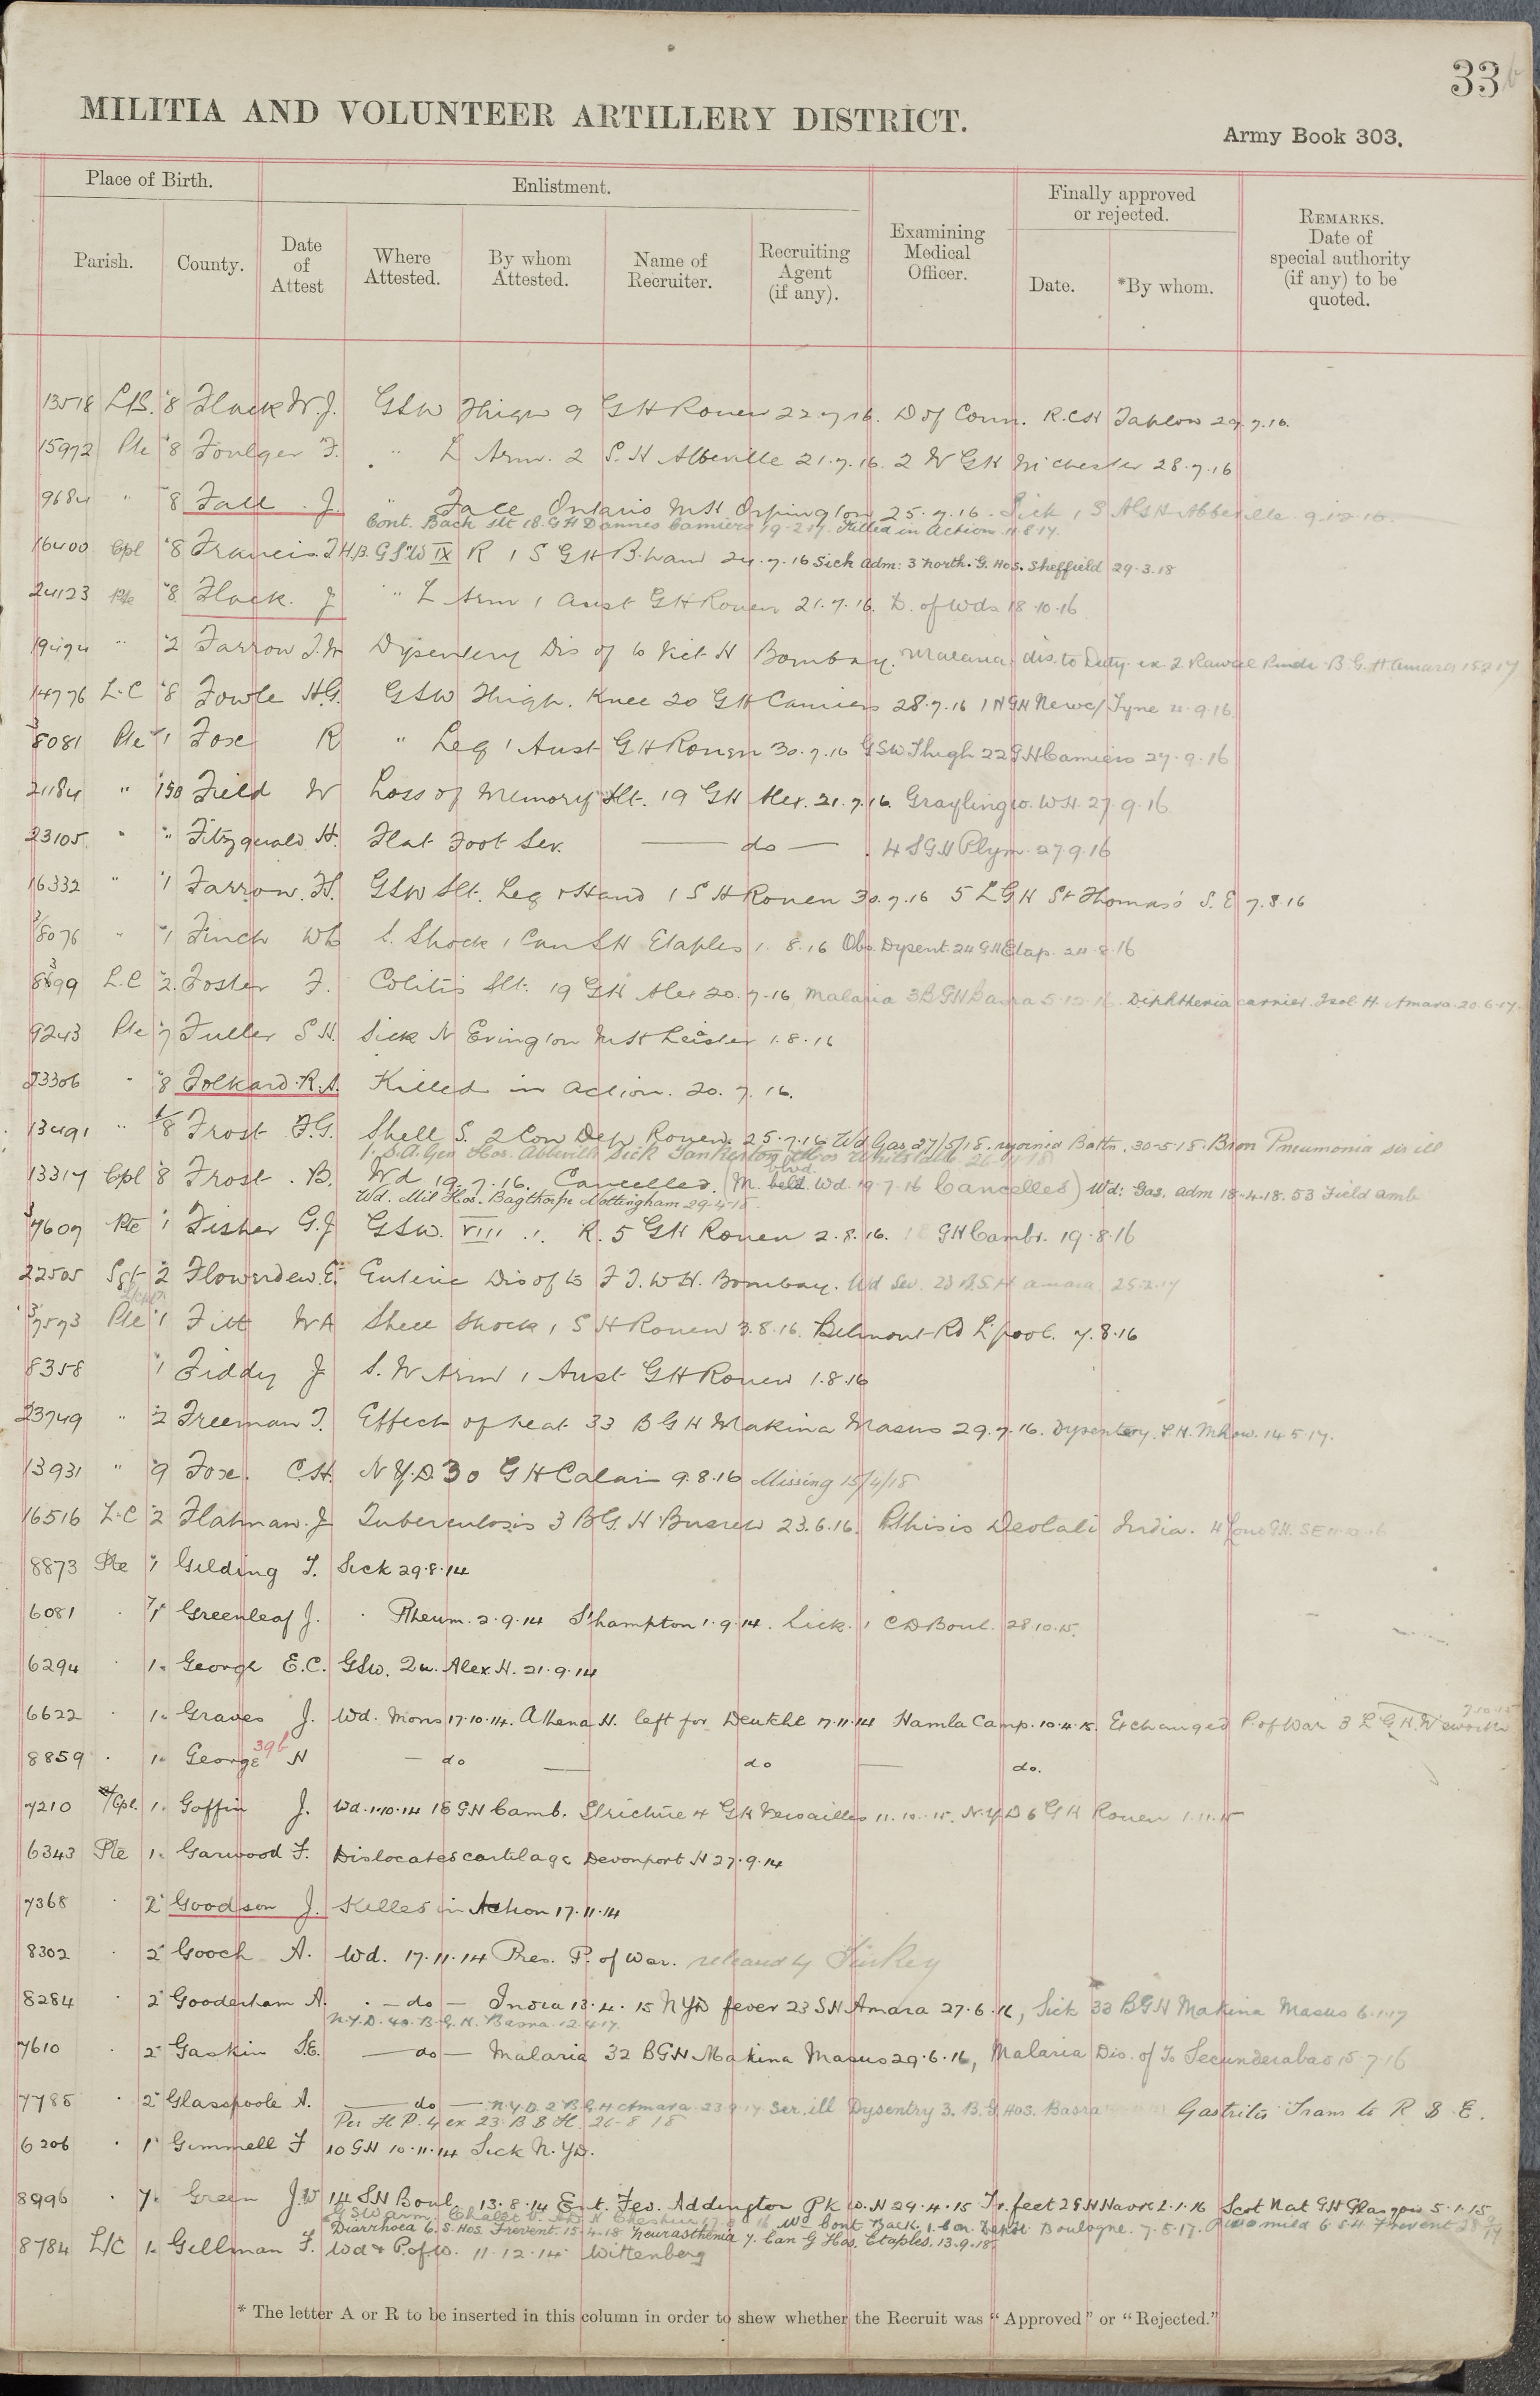 33
MILITIA AND VOLUNTEER ARTILLERY DISTRICT.
Army Book 303.
Place of Birth. Enlistment. Finally approved or rejected.
Parish. County. Date of Attest Where Attested. By whom Attested. Name of Recruiter. Recruiting Agent (if any). Examining Medical Officer. Date. *By whom. REMARKS. Date of special authority (if any) to be quoted.
13518 L/S. "8 Flack W.J. GSW Thigh 9 GH Rouen 22.7.16. D of Conn. R.C.H Taplow 29.7.16.
15972 Pte "8 Foulger F. " L Arm. 2 S.H Abbeville 21.7.16. 2 W GH Mchester 28.7.16
9684 " "8 Fall J. " Face Ontario M H Orpington 25.7.16. Sick 1 S A GH Abbeville 9.12.16.
Cont. Back slt 18 GH Dannes Camiers 19.2.17. Killed in Action 11.8.17.
16400 Cpl "8 Francis J.H.B. GSW IX R 1 S GH B.haw 24.7.16 Sick adm: 3 North. G. Hos. Sheffield 29.3.18
24123 Pte "8 Flack. J " L Arm 1 Aust GH Rouen 21.7.16. D. of Wds 18.10.16
19474 " "2 Farrow J.W Dysentery Dis of to Vict H Bombay. Malaria dis. to Duty ex 2 Rawal Pindi B.G.H. Amara 15.2.17
14776 L.C "8 Fowle H.G. GSW Thigh. Knee 20 GH Camiers 28.7.16 1 N GH Newc/Tyne 4.9.16.
3/8081 Pte "1 Fox R " Leg 1 Aust GH Rouen 30.7.16 GSW Thigh 22 GH Camiers 27.9.16
21184 " "150 Field W Loss of Memory Slt. 19 GH Alex. 21.7.16. Graylingw. W H. 27.9.16
23105 " " Fitzgerald H. Flat Foot Sev. — do — 4 S GH Plym. 27.9.16
16332 " "1 Farrow. H. GSW Slt. Leg & Hand 1 S H Rouen 30.7.16 5 L G H St Thomas's S.E 7.8.16
3/8076 " "1 Finch Wb S. Shock 1 Can S H Etaples 1.8.16 Obs. Dysent. 24 GH Etap. 24.8.16
8399 L.C "2. Foster F. Colitis Slt. 19 GH Alex 20.7.16 Malaria 3 B GH Basra 5.12.16. Diphtheria carrier. Isol. H. Amara. 20.6.17.
9243 Pte "7 Fuller S H. Sick N Evington M H Leicster 1.8.16
23306 " "8 Folkard. R.A. Killed in action. 20.7.16.
13491 " 1/8 Frost F.G. Shell S. 2 Con Dep Rouen. 25.7.16 Wd Gas 27/5/18. rejoined Battn. 30-5-18. Bron Pneumonia ser ill
1. S.A. Gen Hos. Abbeville Sick Tankerton Hos Whitstable
13317 Cpl "8 Frost. B. Wd 19.7.16. Cancelled. (M. beld. Wd. 19.7.16 Cancelled) Wd: Gas. adm 18-4-18. 53 Field amb
Wd. Mil Hos. Bagthorpe Nottingham 29-4-18.
3/7607 Pte "1 Fisher G.J GSW. VIII. R. 5 GH Rouen 2.8.16. 18 GH Cambr. 19.8.16
22505 Sgt "2 Flowerdew. E. Enteric Dis of to F J. W H. Bombay. Wd Sev. 23 B.S.H amara 25.2.17
3/7573 Pte "1 Fitt W A Shell Shock 1 S H Rouen 3.8.16. Belmont Rd L'pool. 7.8.16
8358 "1 Fiddy J S. W Arm 1 Aust GH Rouen 1.8.16
23749 " "2 Freeman T. Effects of heat 33 B G H Makina Masus 29.7.16. Dysentery. S H. Mhow. 14.5.17.
13931 " "9 Fox. C.H. N.Y.D. 30 GH Calais 9.8.16 Missing 15/4/18
16516 L.C "2 Flatman. J Tuberculosis 3 B G. H Busreh 23.6.16. Pthisis Deolali India. 4 Lond G.H. SE
8873 Pte "1 Gilding T. Sick 29.8.14
6081 " Greenleaf J. Rheum. 2.9.14 S'hampton 1.9.14. Sick. 1 C D Boul. 28.10.15.
6294 " 1" George E.C. GSW. 2u. Alex. H. 21.9.14
6622 " 1" Graves J. Wd. Mons 17.10.14. Athena H. left for Deutcht 17.11.14 Hamla Camp. 10.4.15. Exchanged P. of War 3 L G H. W'sworth 7.10.15
8859 " 1" George 39b H — do — do — do.
7210 A/Cpl. 1" Goffin J. Wd. 1.10.14 18 GH Camb. Stricture 4 GH Versailles 11.10.15. N.Y.D 6 GH Rouen 1.11.15
6343 Pte 1" Garwood F. Dislocated cartilage Devonport H 27.9.14
7368 " 2" Goodson J. Killed in Action 17.11.14
8302 " 2" Gooch A. Wd. 17.11.14 Pres. P. of War. released by Turkey
8284 " 2" Gooderham A. — do — India 13.4.15 NYD fever 23 S H Amara 27.6.16, Sick 33 B GH Makina Masus 6.1.17
N.Y.D. 40. B.G.H. Basra 12.4.17.
7610 " 2" Gaskin S.E. — do — Malaria 32 B GH Makina Masus 29.6.16, Malaria Dis. of To Secunderabad 15.7.16
7785 " 2" Glasspoole A. — do — N.Y.D. 2 B G H Amara 23.9.17 Ser. ill Dysentry 3. B. G Hos. Basra Gastritis Trans to R S E.
Per H P. 4 ex 23 B S H. 26-8-18
6206 " 1" Gimmell F 10 GH 10.11.14 Sick N.YD.
8996 " 7" Green J.W 14 S H Boul. 13.8.14 Ent. Fev. Addington Pk W. H 29.4.15 Tr. feet 2 S H Havre 2.1.16 Scot Nat GH Glasgow 5.1.15
GSW arm. Chalet Wd Cont Back. 1. Con. Depot Boulogne. 7.5.17. mild 6 S H Frevent
Diarrhoea 6. S. Hos. Frevent. 15.4.18 Neurasthenia 7. Can G Hos. Etaples. 13.9.18
8784 L/C 1" Gillman F. Wd & P. of W. 11.12.14 Wittenberg
* The letter A or R to be inserted in this column in order to shew whether the Recruit was "Approved" or "Rejected."